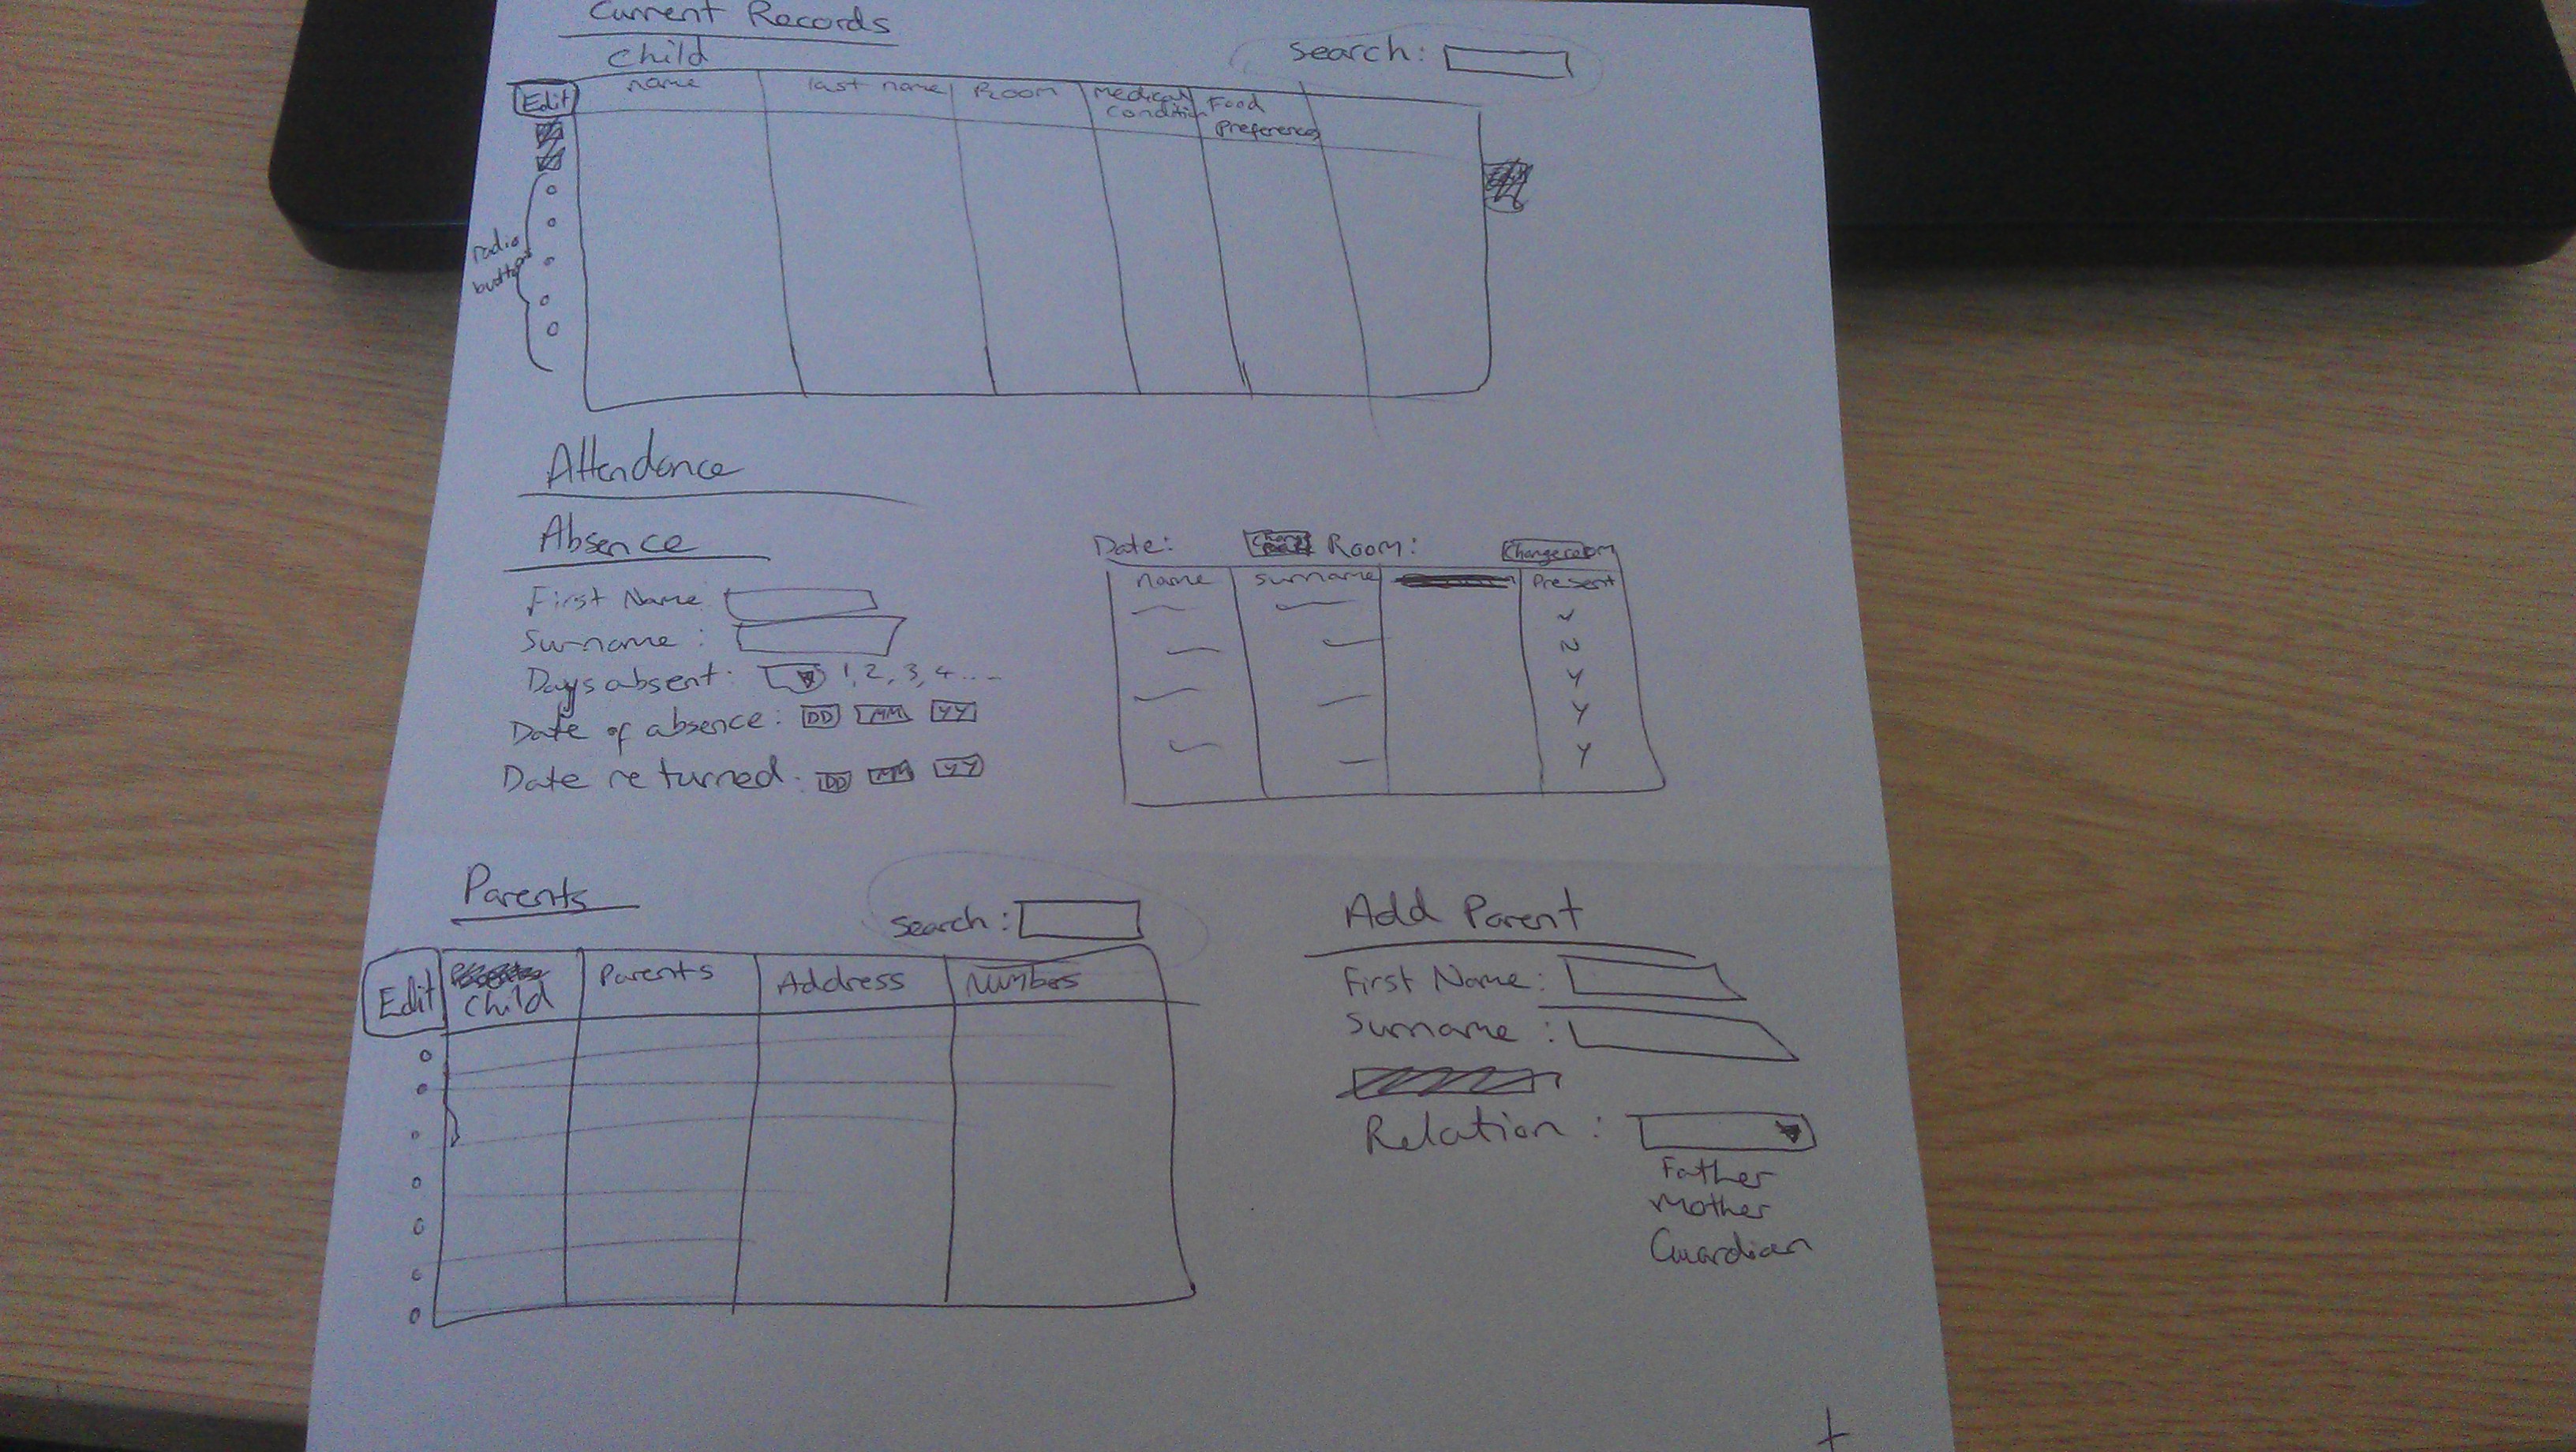 Current Records
Child
Search:
Edit name last name Room Medical Condition Food Preferences
radio buttons
Attendance
Absence
First Name
Surname :
Days absent: 1, 2, 3, 4 ...
Date of absence: DD MM YY
Date returned: DD MM YY
Date: Change Room: Change room
name surname Present
N
Y
Y
Y
Parents
Search:
Edit Child Parents Address Numbers
Add Parent
First Name:
Surname :
Relation :
Father
Mother
Guardian